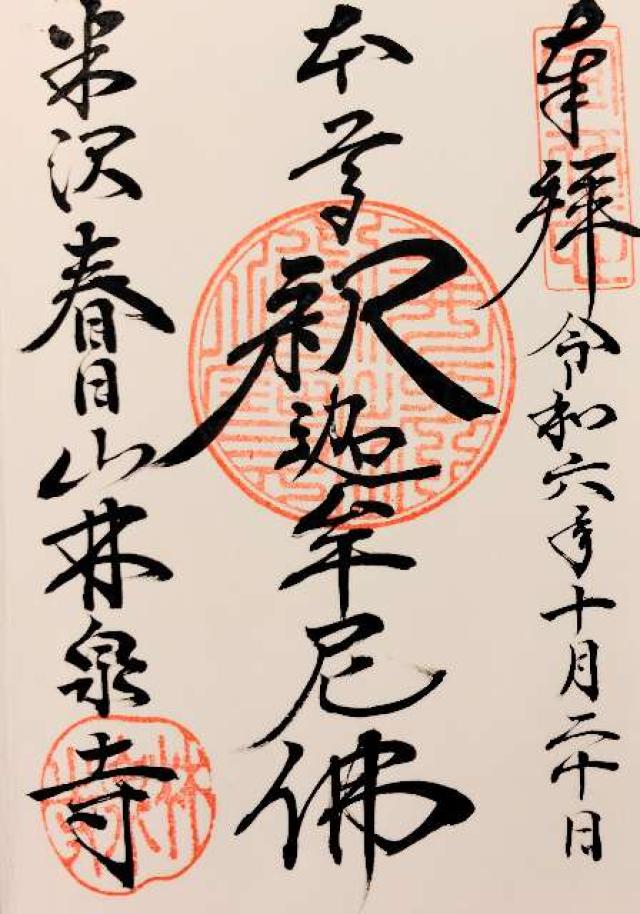 奉拝 令和六年十月二十日
本尊 釈迦牟尼佛
米沢 春日山 林泉寺